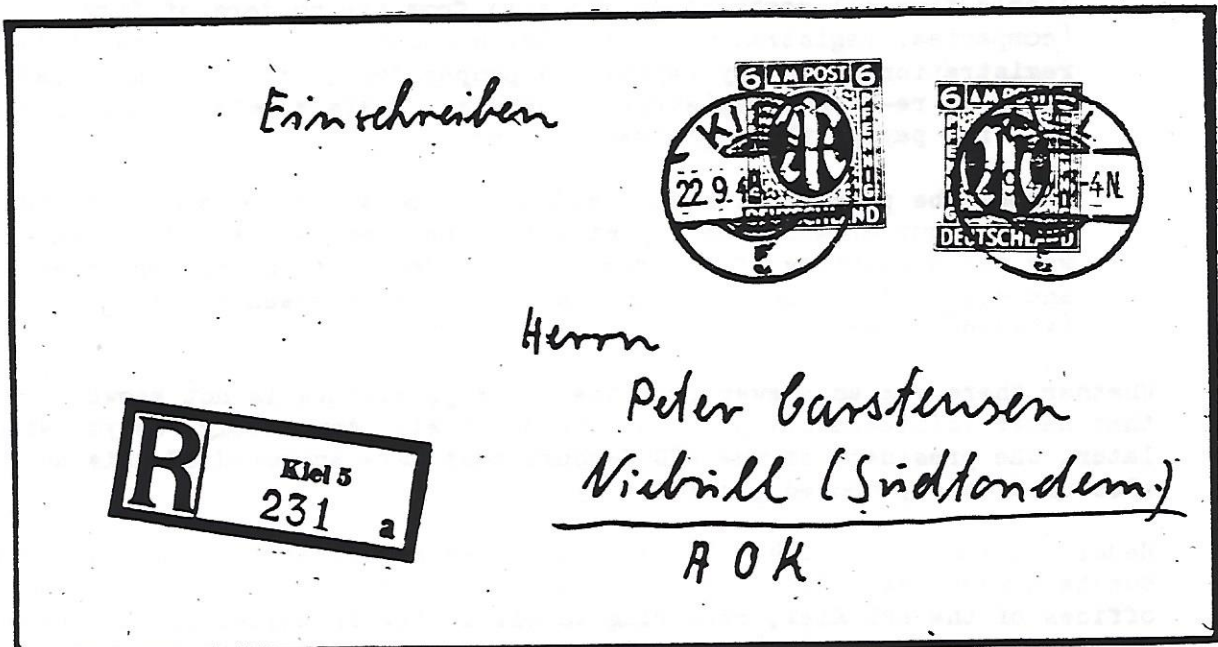 Einschreiben
6 AM POST 6
PFENNIG
DEUTSCHLAND
6 AM POST
PFENNIG
DEUTSCHLAND
KIEL
22.9.4
-4N
Herrn
Peter Carstensen
Niebüll (Südtondern.)
AOK
R
Kiel 5
231 a